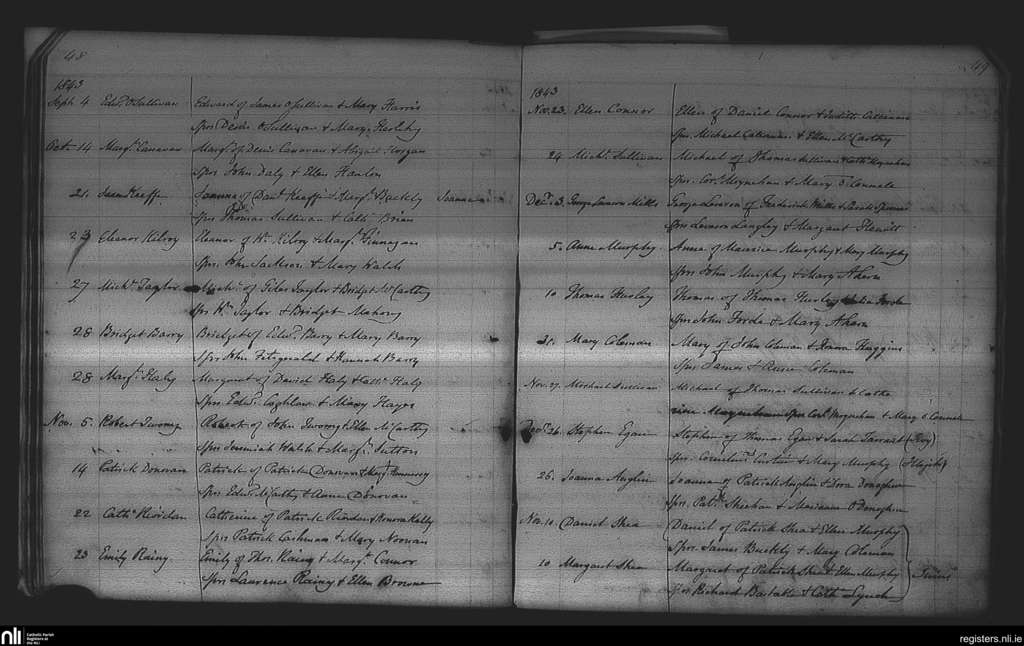 48
1843
Sept 4 Edwd O'Sullivan Edward of James O'Sullivan & Mary Harris
Sprs Denis O'Sullivan & Mary
Oct 14 Margt Canavan Margt of Denis Canavan & Abigail Horgan
Sprs John Daly & Ellen Hanlon
21. Joanna Keeffe Joanna of Danl Keeffe & Margt Buckly Joanna
Sprs Thomas Sullivan & Cathe Brien
Eleanor Kilroy Eleanor of Wm Kilroy & Margt Finnegan
Sprs John Jackson & Mary Walsh
27 Michl Taylor Michl of Giles Taylor & Bridget McCarthy
Sprs Wm Taylor & Bridget Mahony
28 Bridget Barry Bridget of Edwd Barry & Mary Barry
Sprs John Fitzgerald & Hannah Barry
28 Margt Haly Margaret of David Haly & Cathe Haly
Sprs Edwd Coghlan & Mary Hayes
Nov. 5. Robert Twomy Robert of John Twomy & Ellen McCarthy
Sprs Jeremiah Walsh & Margt Sutton
14 Patrick Donovan Patrick of Patrick Donovan & Mary Hennessy
Sprs Edwd McCarthy & Anne Donovan
22 Cathe Riordan Catherine of Patrick Riordan & Honora Kelly
Sprs Patrick Cashman & Mary Noonan
23 Emily Rainy Emily of Thos. Rainy & Margt Connor
Sprs Laurence Rainy & Ellen Browne
49
1843
Nov. 23. Ellen Connor Ellen of Daniel Connor & Judith
Sprs Michael & Ellen McCarthy
24 Michl Sullivan Michael of Thomas Sullivan & Cathe Moynehan
Sprs Cors Moynehan & Mary O'Connell
Decr. 3. George Mills George of Frederick Mills & Sarah Spencer
Sprs Langley & Margaret Hewitt
5. Anne Murphy Anne of Maurice Murphy & Mary Murphy
Sprs John Murphy & Mary Ahern
10 Thomas Hurley Thomas of Thomas Hurley & Forde
Sprs John Forde & Mary Ahern
21. Mary Coleman Mary of John Coleman & Huggins
Sprs James & Anne Coleman
Nov. 27. Michael Sullivan Michael of Thomas Sullivan & Cathe
rine Moynehan Sprs Cors Moynehan & Mary O'Connell
Decr. 26. Stephen Egan Stephen of Thomas Egan & Sarah Tarrant
Sprs Cornelius Curtin & Mary Murphy
26. Joanna Anglin Joanna of Patrick Anglin & Nora Donoghue
Sprs Patk Sheehan & Marianne O'Donoghue
Nov. 10. Daniel Shea Daniel of Patrick Shea & Ellen Murphy
Sprs James Buckly & Mary Coleman
10 Margaret Shea Margaret of Patrick Shea & Ellen Murphy Twins
Sprs Richard Barstable & Cath Lynch
nli
Catholic Parish
Registers at
the NLI
registers.nli.ie